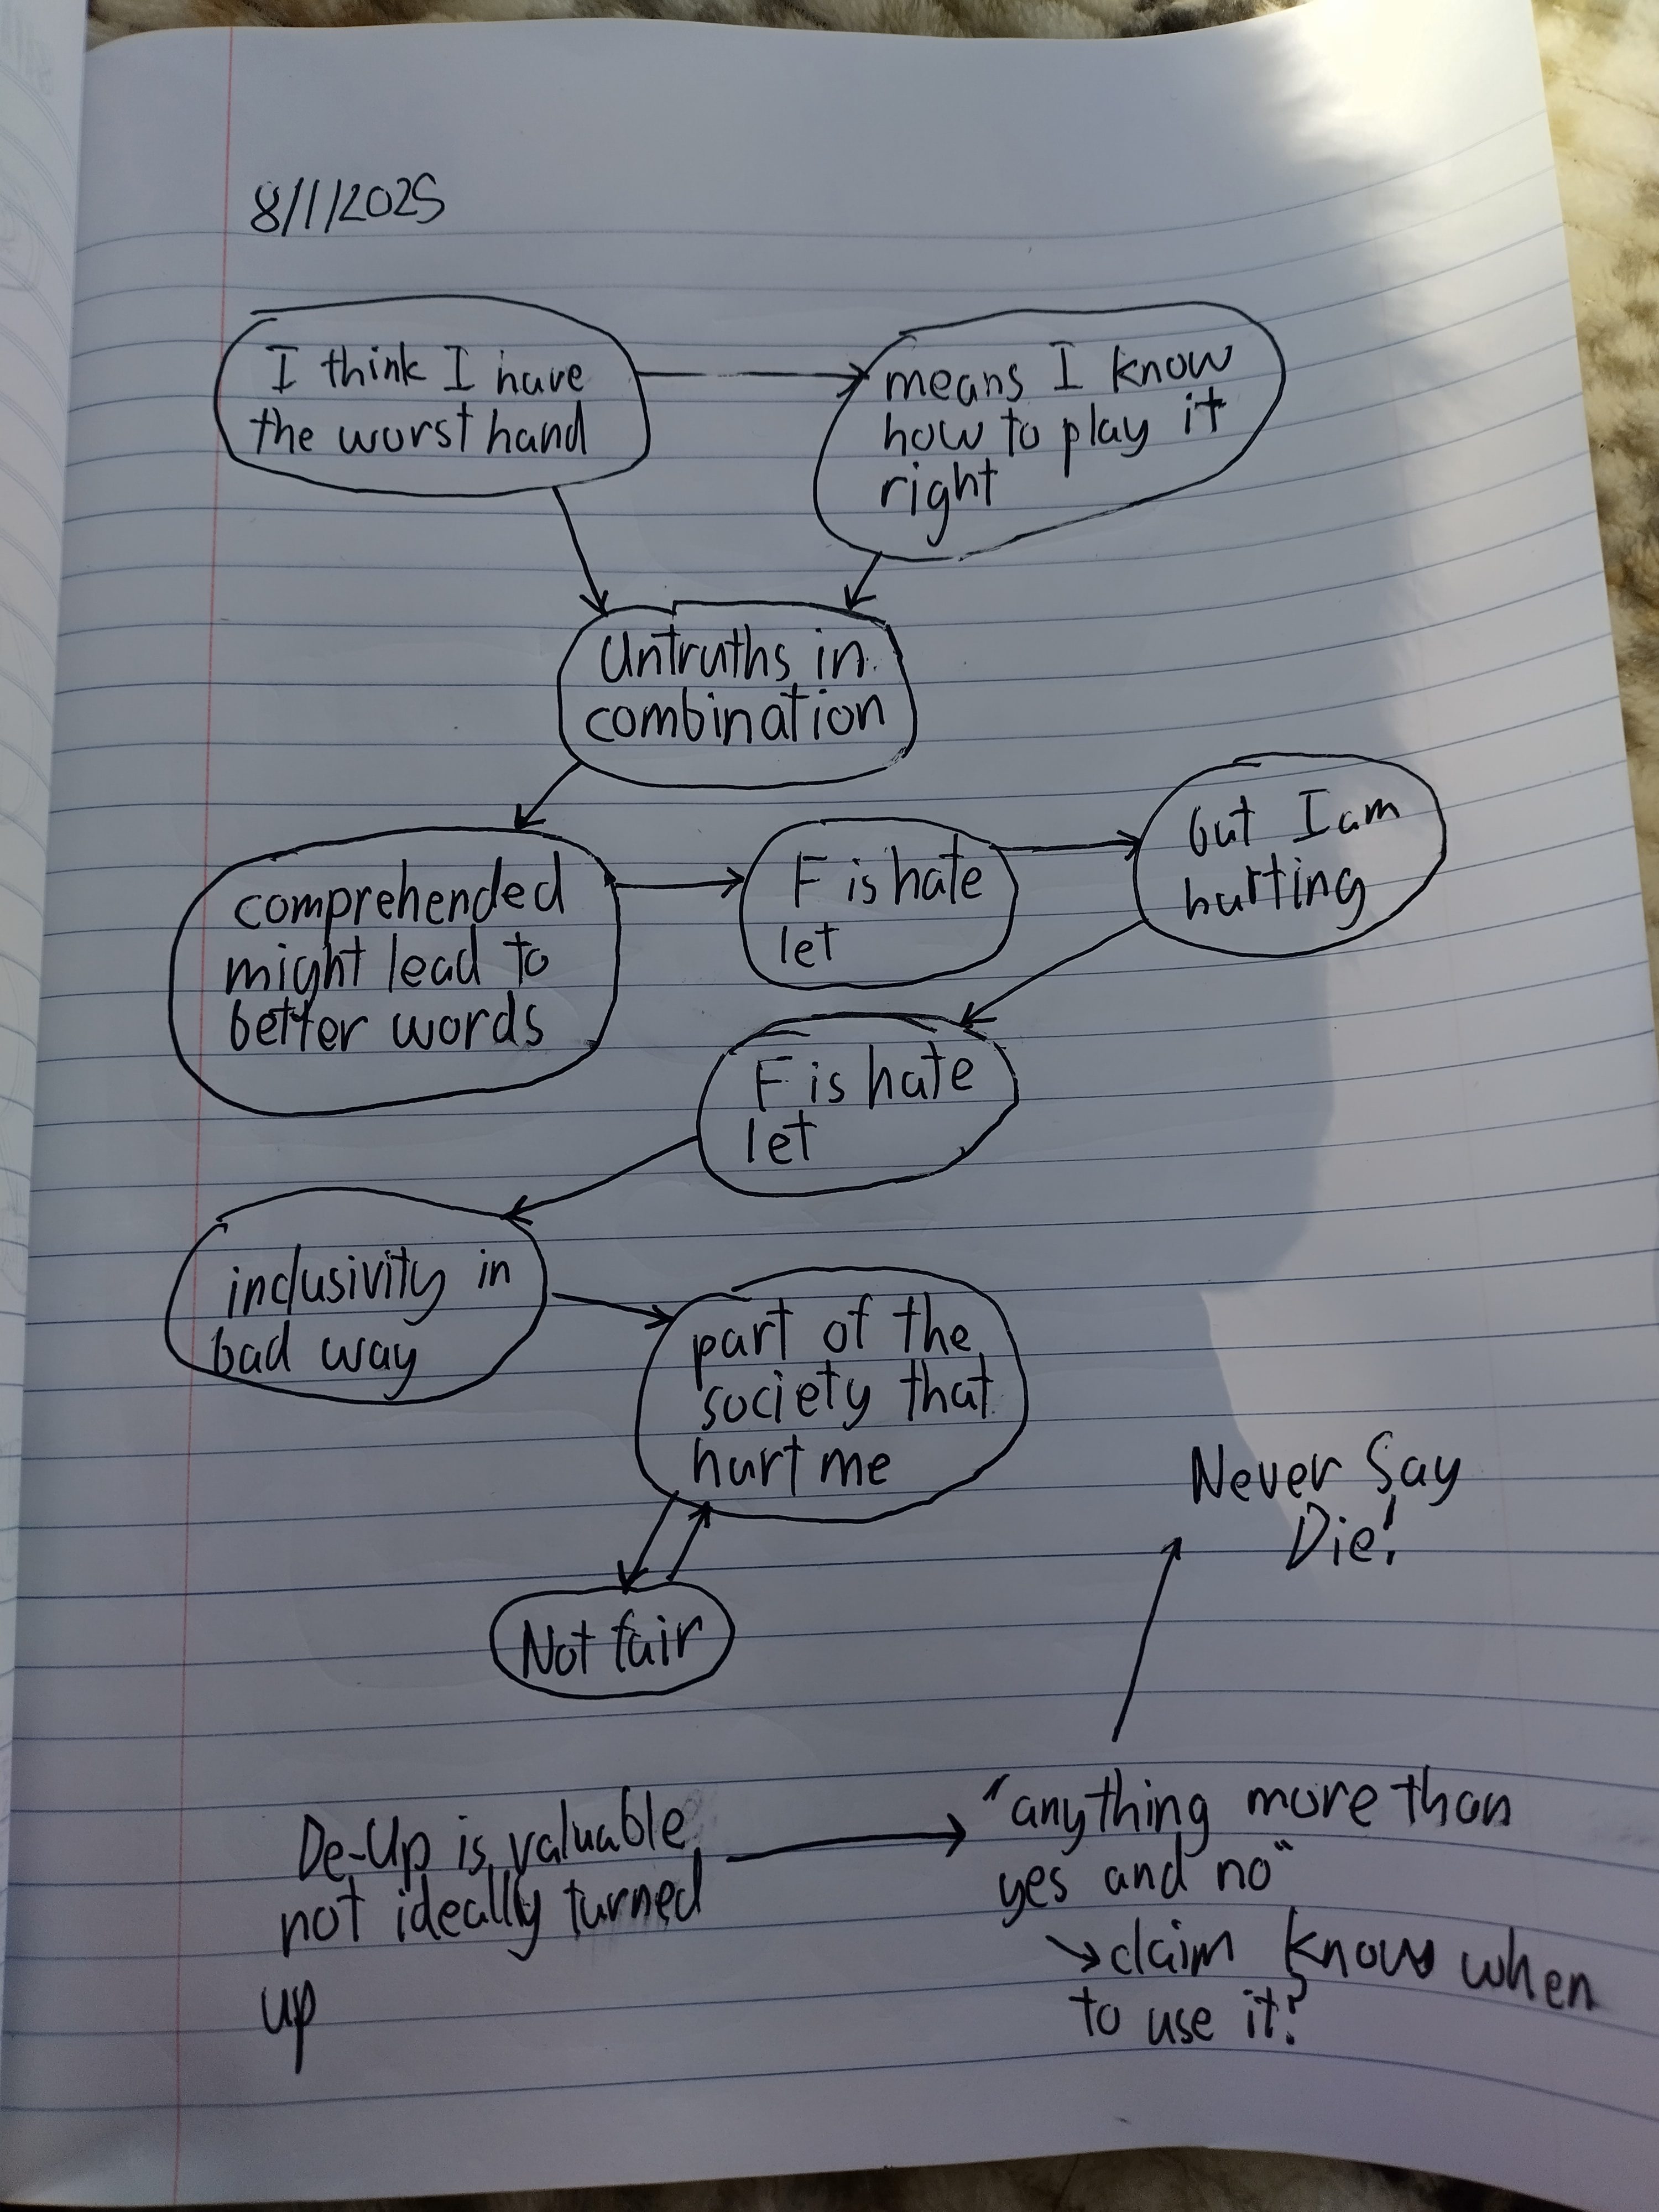 8/1/2025
I think I have
the worst hand
means I know
how to play it
right
Untruths in
combination
comprehended
might lead to
better words
F is hate
let
but I am
hurting
F is hate
let
inclusivity in
bad way
part of the
society that
hurt me
Not fair
Never Say
Die!
De-Up is valuable
not ideally turned
up
"anything more than
yes and no"
claim know when
to use it?